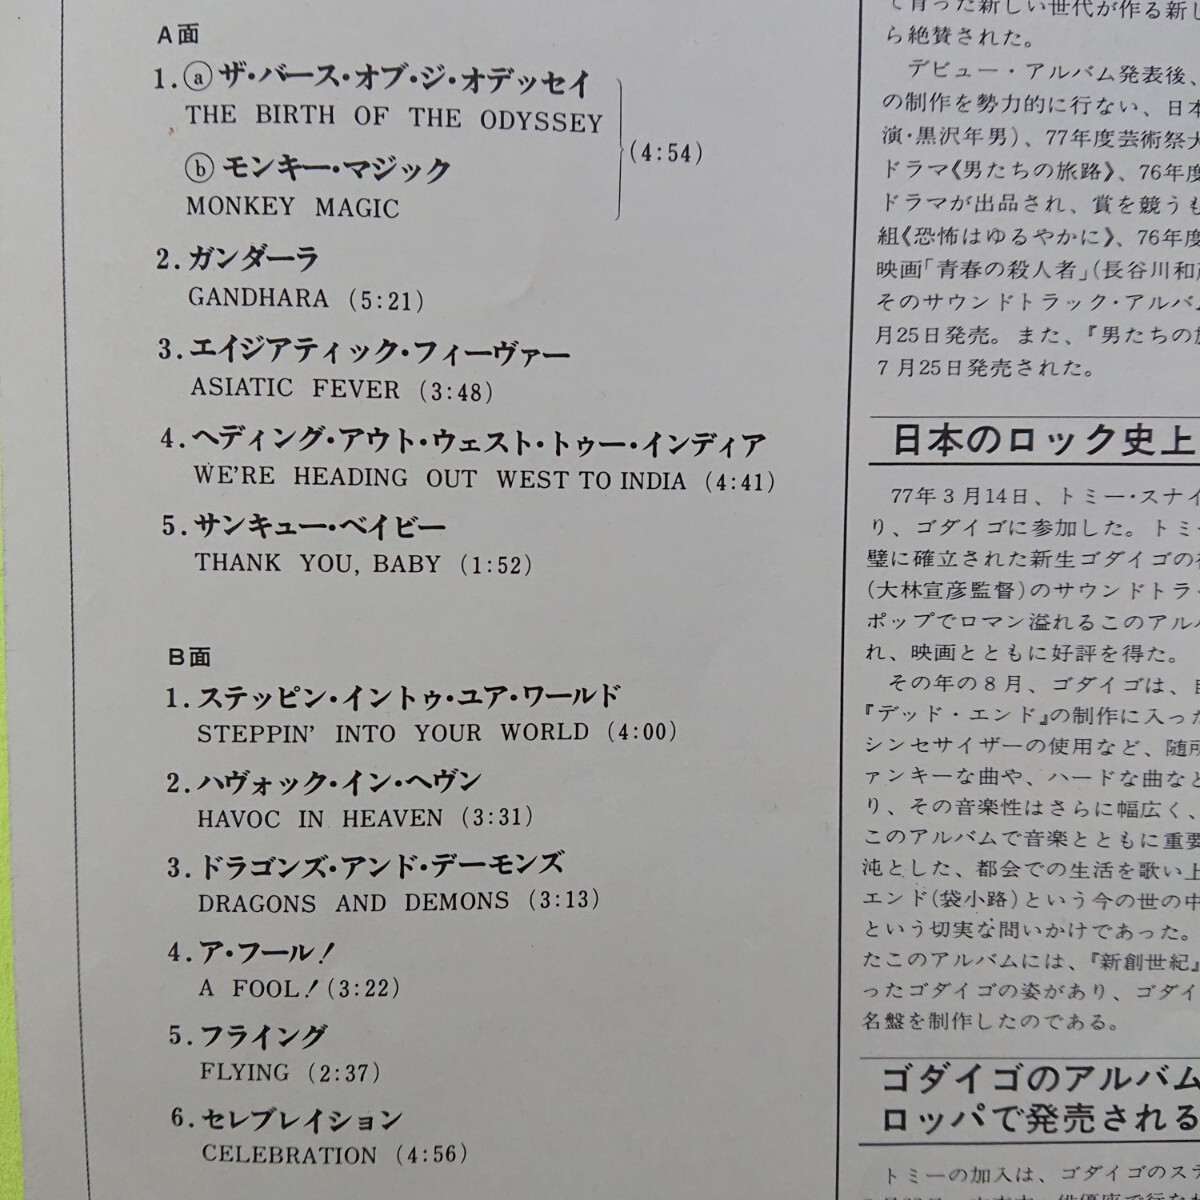 A面
1.ⓐザ・バース・オブ・ジ・オデッセイ
THE BIRTH OF THE ODYSSEY
(4:54)
ⓑモンキー・マジック
MONKEY MAGIC
2.ガンダーラ
GANDHARA (5:21)
3.エイジアティック・フィーヴァー
ASIATIC FEVER (3:48)
4.ヘディング・アウト・ウェスト・トゥー・インディア
WE'RE HEADING OUT WEST TO INDIA (4:41)
5.サンキュー・ベイビー
THANK YOU, BABY (1:52)
B面
1.ステッピン・イントゥ・ユア・ワールド
STEPPIN' INTO YOUR WORLD (4:00)
2.ハヴォック・イン・ヘヴン
HAVOC IN HEAVEN (3:31)
3.ドラゴンズ・アンド・デーモンズ
DRAGONS AND DEMONS (3:13)
4.ア・フール!
A FOOL! (3:22)
5.フライング
FLYING (2:37)
6.セレブレイション
CELEBRATION (4:56)
て育った新しい世代が作る新し
ら絶賛された。
デビュー・アルバム発表後、
の制作を勢力的に行ない、日本
演・黒沢年男)、77年度芸術祭大
ドラマ《男たちの旅路》、76年度
ドラマが出品され、賞を競うも
組《恐怖はゆるやかに》、76年度
映画「青春の殺人者」(長谷川和
そのサウンドトラック・アルバム
月25日発売。また、『男たちの旅
7月25日発売された。
日本のロック史上
77年3月14日、トミー・スナイ
り、ゴダイゴに参加した。トミ
璧に確立された新生ゴダイゴの
(大林宣彦監督)のサウンドトラ
ポップでロマン溢れるこのアル
れ、映画とともに好評を得た。
その年の8月、ゴダイゴは、
『デッド・エンド』の制作に入った
シンセサイザーの使用など、随所
ァンキーな曲や、ハードな曲など
り、その音楽性はさらに幅広く、
このアルバムで音楽とともに重要
沌とした、都会での生活を歌い上
エンド(袋小路)という今の世の中
という切実な問いかけであった。
たこのアルバムには、『新創世紀』
ったゴダイゴの姿があり、ゴダイ
名盤を制作したのである。
ゴダイゴのアルバム
ロッパで発売される
トミーの加入は、ゴダイゴのステ